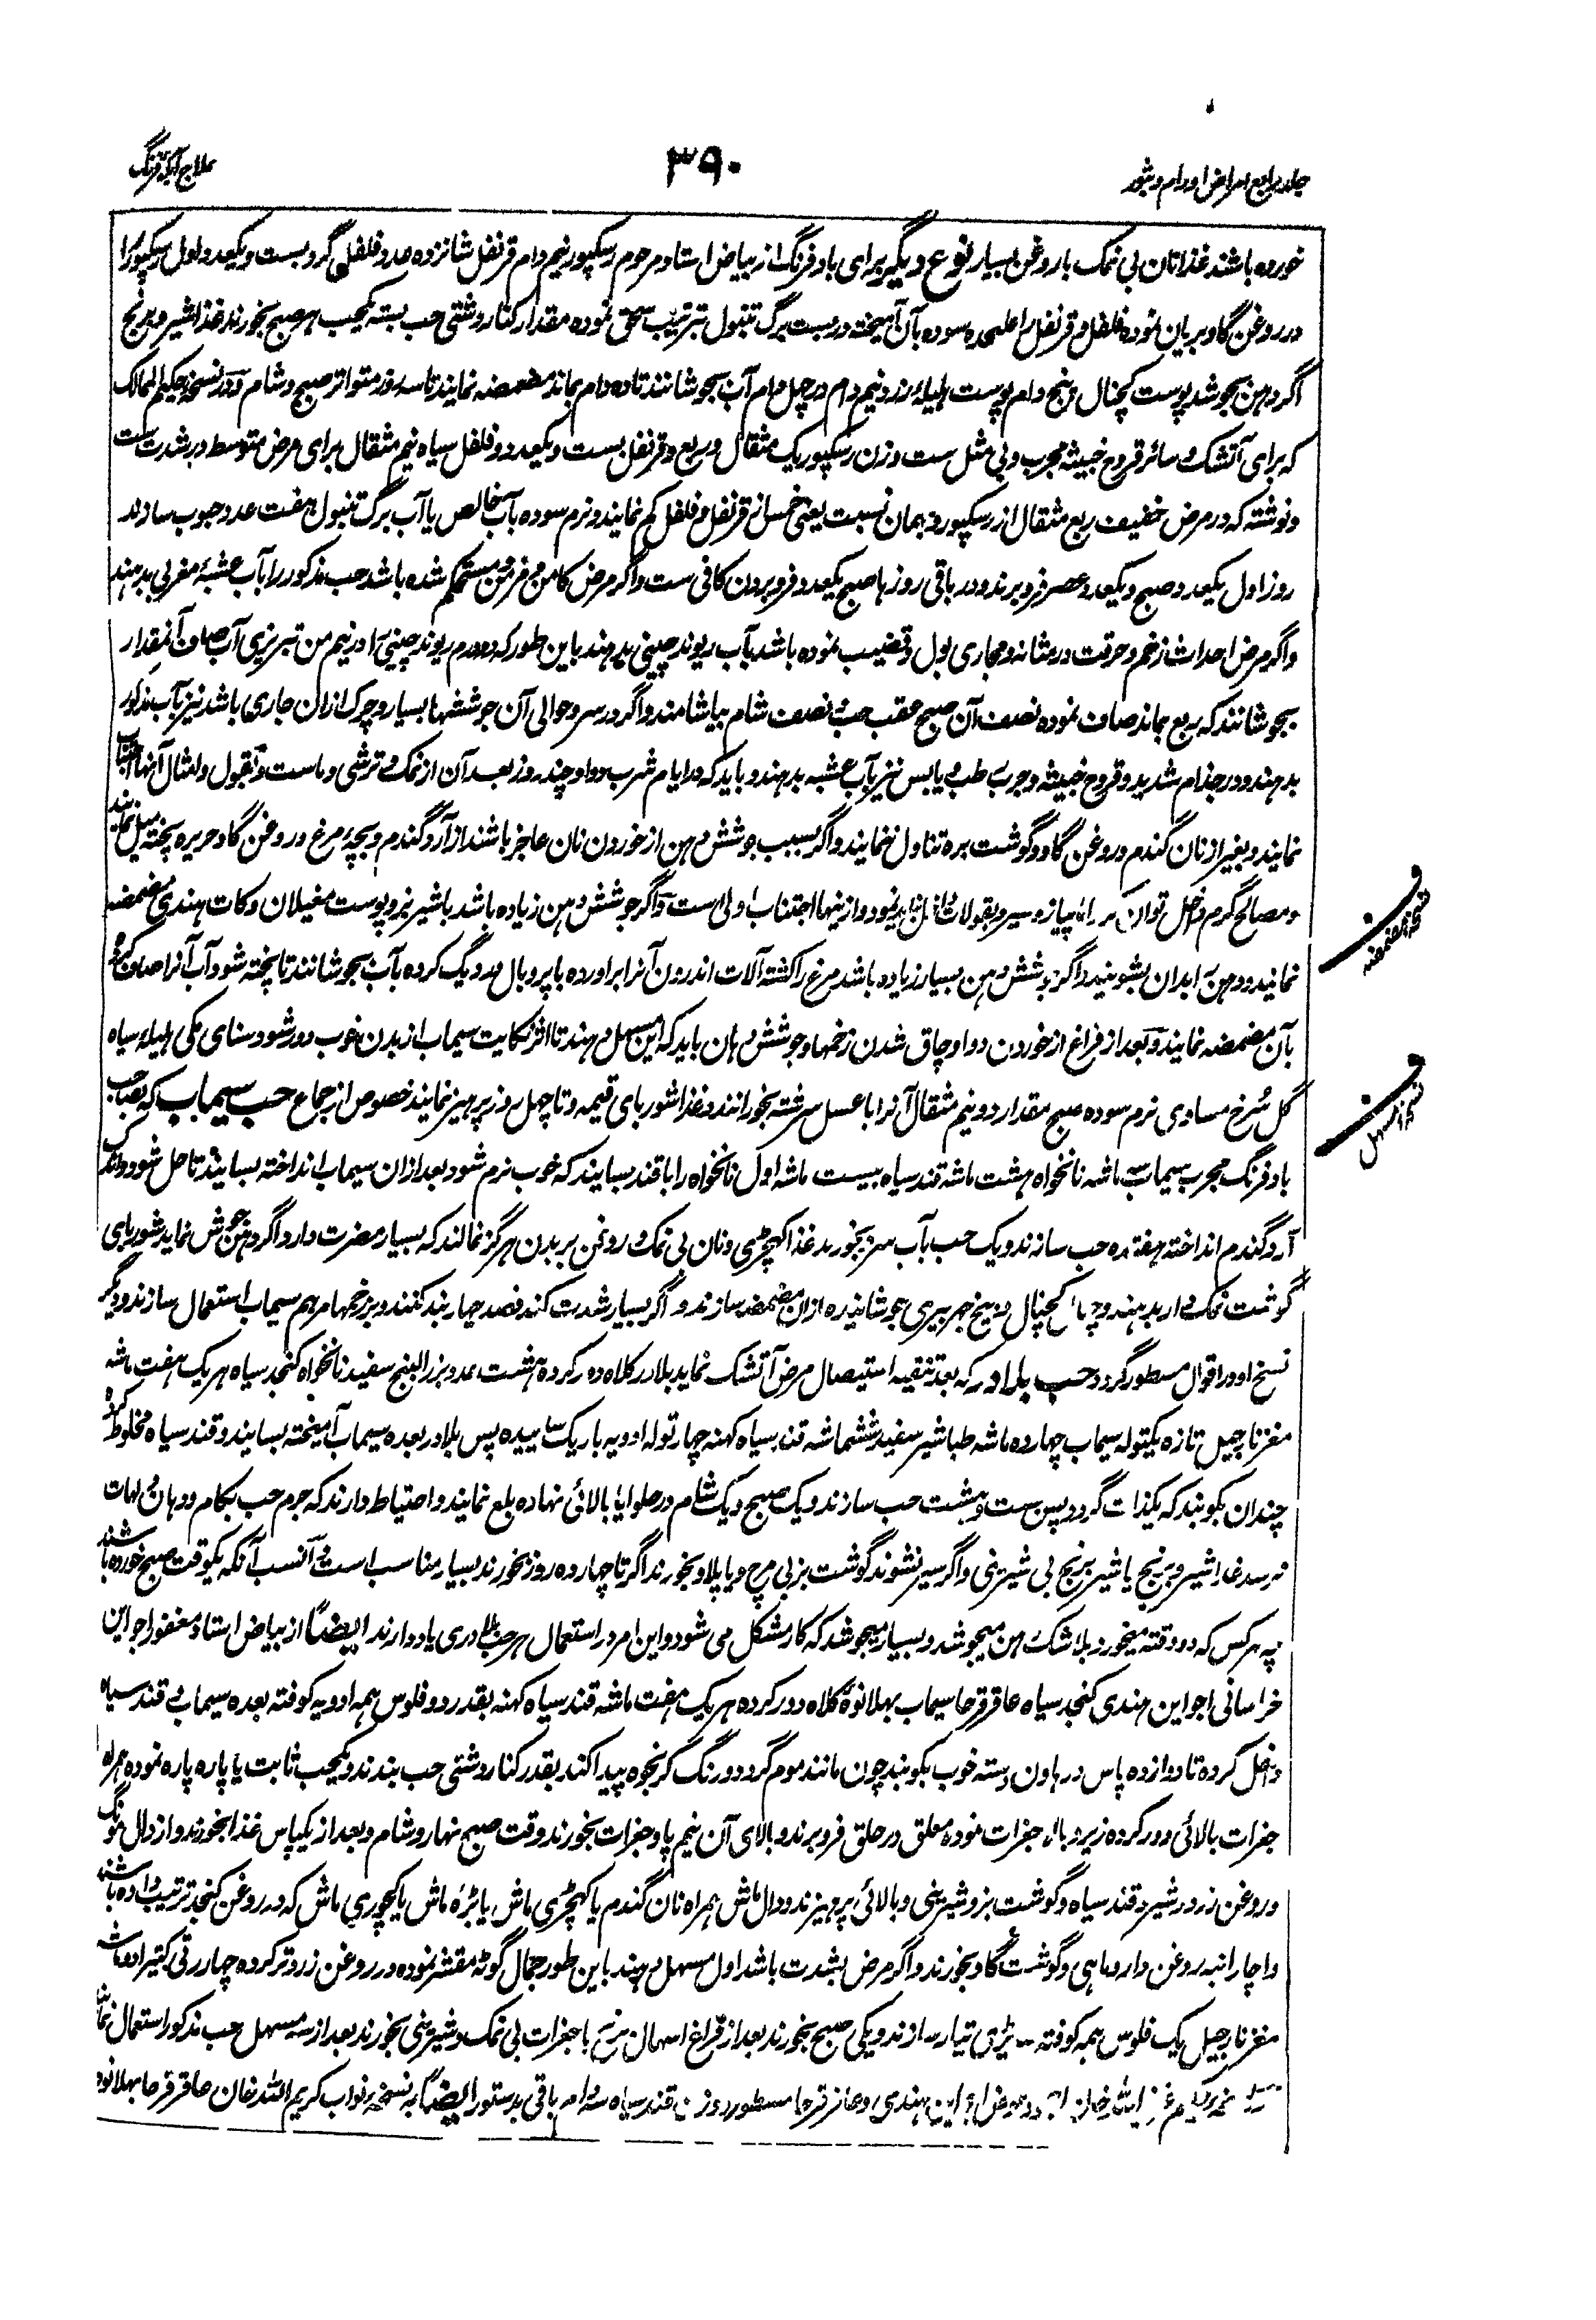 جلد رابع امراض اورام و بثور
۳۹۰
علاج آبلہ فرنگ
خورده باشند غذا نان بی نمک با روغن بسیار نوع دیگر برای باد فرنگ از بیاض استاد مرحوم رسکپور نیم دام قرنفل شانزده عدد فلفل گرد بست و یکعدد اول رسکپور را
در روغن گاو بریان نموده فلفل و قرنفل را علیحده سوده بآن آمیخته در بست برگ تنبول بترتیب سحق نموده مقدار کنار دشتی حب بسته یکحب هر صبح بخورند غذا شیر و برنج
اگر دهن بجوشد پوست کچنال پنج دام پوست هلیله زرد نیم دام در چهل دام آب بجوشانند تا ده دام بماند مضمضه نمایند تا سه روز متواتر صبح و شام و در نسخه حکیم الممالک
که برای آتشک و سائر قروح خبیثه مجرب و بی مثل ست وزن رسکپور یک مثقال و ربع و قرنفل بست و یکعدد و فلفل سیاه نیم مثقال برای مرض متوسط در شدت ست
و نوشته که در مرض خفیف ربع مثقال از رسکپور و بهمان نسبت یعنی خمس از قرنفل و فلفل کم نمایند و نرم سوده بآب خالص یا آب برگ تنبول هفت عدد حبوب سازند
روز اول یکعدد صبح و یکعدد عصر فرو برند و در باقی روزها صبح یکعدد فرو بردن کافی ست و اگر مرض کامن مزمن مستحکم شده باشد حب مذکور را بآب عشبهٔ مغربی بدهند
و اگر مرض احداث زخم و حرقت در مثانه و مجاری بول و قضیب نموده باشد بآب ریوند چینی بدهند باین طور که دو درم ریوند چینی را در نیم من تبریزی آب صاف آنمقدار
بجوشانند که ربع بماند صاف نموده نصف آن صبح عقب حب و نصف شام بیاشامند و اگر در سر و حوالی آن جوششها بسیار و چرک ازان جاری باشد نیز بآب مذکور
بدهند و در جذام شدید و قروح خبیثه و جرب رطب و یابس نیز بآب عشبه بدهند و باید که در ایام شرب دوا و چند روز بعد آن از نمک و ترشی و ماست و بقول و امثال آنها اجتناب
نمایند و بغیر از نان گندم و روغن گاو و گوشت بره تناول ننمایند و اگر بسبب جوشش دهن از خوردن نان عاجز باشند از آرد گندم و بچهٔ مرغ در روغن گاو حریره پخته میل نمایند
و مصالح گرم داخل توان کرد اما پیاز و سیر و بقولات داخل نباید نمود و از اینها اجتناب اولی است و اگر جوشش دهن زیاده باشد با شیر بز و پوست مغیلان و کات هندی مضمضه
نمایند و دهن را بدان بشویند و اگر جوشش دهن بسیار زیاده باشد مرغ را کشته آلات اندرون آنرا برآورده با پر و بال در دیگ کرده بآب بجوشانند تا پخته شود آب آنرا صاف نموده
بآن مضمضه نمایند و بعد از فراغ از خوردن دوا و چاق شدن زخمها و جوشش دهان باید که این مسهل دهند تا اثر نکایت سیماب از بدن خوب دور شود سنای مکی هلیله سیاه
گل سرخ مساوی نرم سوده صبح مقدار دو نیم مثقال آنرا با عسل سرشته بخورانند و غذا شوربای قیمه و تا چهل روز پرهیز نمایند خصوص از جماع حب سیماب که بصاحب
باد فرنگ مجرب سیماب سه ماشه نانخواه هشت ماشه قند سیاه بیست ماشه اول نانخواه را با قند بسایند که خوب نرم شود بعد ازان سیماب انداخته بسایند تا حل شود و اندک
آرد گندم انداخته هفتده حب سازند و یک حب بآب سرد بخورند غذا کهچڑی و نان بی نمک و روغن بر بدن هرگز نمالند که بسیار مضرت دارد اگر دهن جوش نماید شوربای
گوشت نمک دار بدهند و چهال کچنال و بیخ جهر بیری بجوشانیده ازان مضمضه سازند و اگر بسیار شدت کند فصد چهار بند کنند و بر زخمها مرهم سیماب استعمال سازند و دیگر
نسخ او در اقوال مسطور گردد حب بلادر که بعد تنقیه استیصال مرض آتشک نماید بلادر کلاه دور کرده هشت عدد بزرالبنج سفید نانخواه کنجد سیاه هر یک هفت ماشه
مغز نارجیل تازه یکتوله سیماب چهارده ماشه طباشیر سفید ششماشه قند سیاه کهنه چهار توله ادویه باریک سائیده پس بلادر بعده سیماب آمیخته بسایند و قند سیاه مخلوط کرده
چندان بکوبند که یکذات گردد پس بست و هشت حب سازند و یک صبح و یک شام در حلوا یا بالائی نهاده بلع نمایند و احتیاط دارند که جرم حب بکام و دهان و لهات
نرسد غذا شیر و برنج یا شیر برنج بی شیرینی و اگر سیر نشوند گوشت بز بی مرچ و یا پلاو بخورند اگر تا چهارده روز بخورند بسیار مناسب است و انسب آنکه یکوقت صبح خورده باشند
چه هر کس که دو وقته میخورد بلا شک دهن میجوشد و بسیار میجوشد که کار مشکل می شود و این امر در استعمال هر حب بلادری یاد دارند ایضاً از بیاض استاد مغفور اجواین
خراسانی اجواین هندی کنجد سیاه عاقرقرحا سیماب بهلانوه کلاه دور کرده هر یک هفت ماشه قند سیاه کهنه بقدر دو فلوس همه ادویه کوفته بعده سیماب و قند سیاه
داخل کرده تا دوازده پاس در هاون دسته خوب بکوبند چون مانند موم گردد و رنگ کرنجوه پیدا کند بقدر کنار دشتی حب بندند و یکحب ثابت یا پاره پاره نموده همراه
جغرات بالائی دور کرده زیر و بالا جغرات نموده معلق در حلق فرو برند و بالای آن نیم پاو جغرات بخورند وقت صبح نهار و شام و بعد از یکپاس غذا بخورند و از دال مونگ
و روغن زرد و شیر و قند سیاه و گوشت بز و شیرینی و بالائی پرهیزند و دال ماش همراه نان گندم یا کهچڑی ماش یا بڑهٔ ماش یا کچوری ماش که در روغن کنجد ترتیب داده باشند
و اچار انبه روغن دار و ماهی و گوشت گاو بخورند و اگر مرض بشدت باشد اول مسهل دهند باین طور جمال گوٹه مقشر نموده در روغن زرد تر کرده چهار رتی کتیرا دو ماشه
مغز نارجیل یک فلوس همه کوفته تیار سازند و یکی صبح بخورند بعد از فراغ اسهال برنج با جغرات بی نمک و شیرینی بخورند بعد از سه مسهل حب مذکور استعمال نمایند
اجواین هندی و عاقرقرحا مسطور و وزن قند سیاه باقی بدستور ایضاً به نسخه نواب کریم الله خان عاقرقرحا بهلانوه
نسخه مضمضه
نسخه مسهل